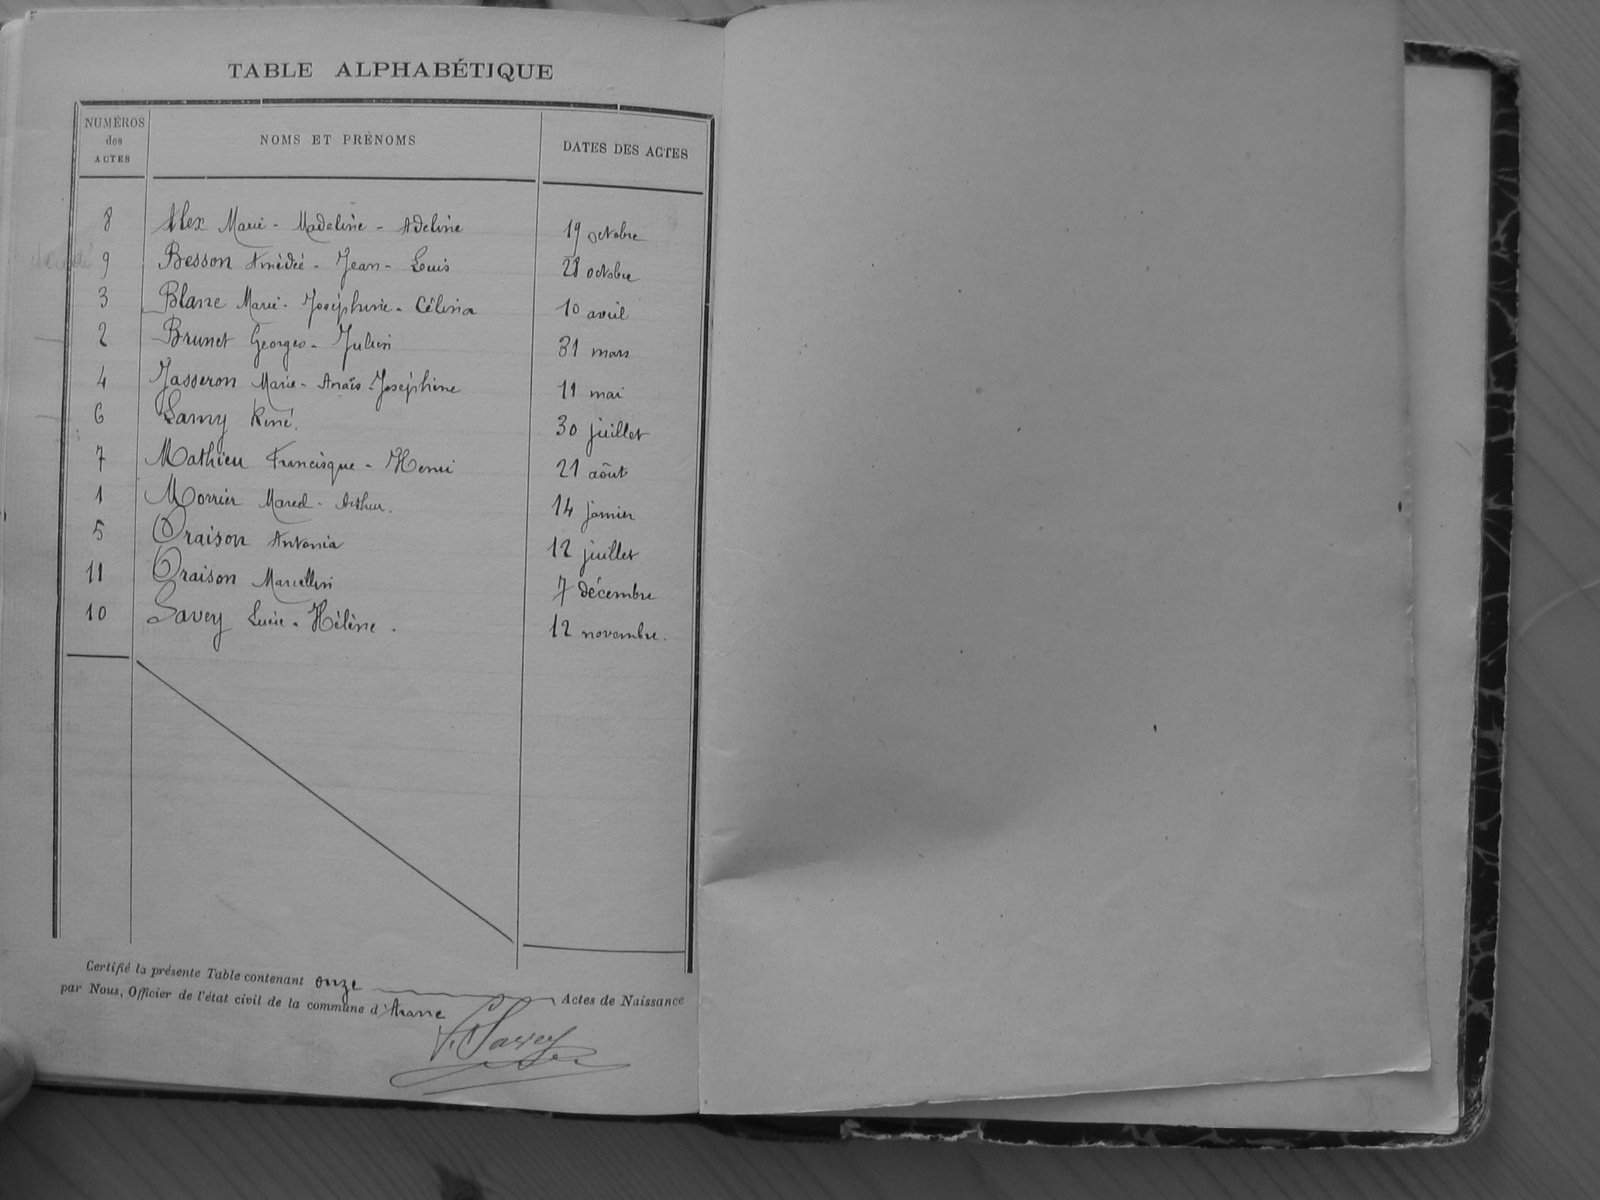 TABLE ALPHABÉTIQUE
NUMÉROS des ACTES NOMS ET PRÉNOMS DATES DES ACTES
8 Alex Marie - Madeleine - Adeline 19 octobre
9 Besson Amédée - Jean - Louis 28 octobre
3 Blanc Marie - Joséphine - Célina 10 avril
2 Brunet Georges - Julien 31 mars
4 Jasseron Marie - Anaïs - Joséphine 11 mai
6 Lamy René. 30 juillet
7 Mathieu Francisque - Henri 21 août
1 Morrier Marcel - Arthur. 14 janvier
5 Oraison Antonia 12 juillet
11 Oraison Marcellin 7 décembre
10 Savey Lucie - Hélène. 12 novembre.
Certifié la présente Table contenant onze Actes de Naissance
par Nous, Officier de l'état civil de la commune d'
Savey